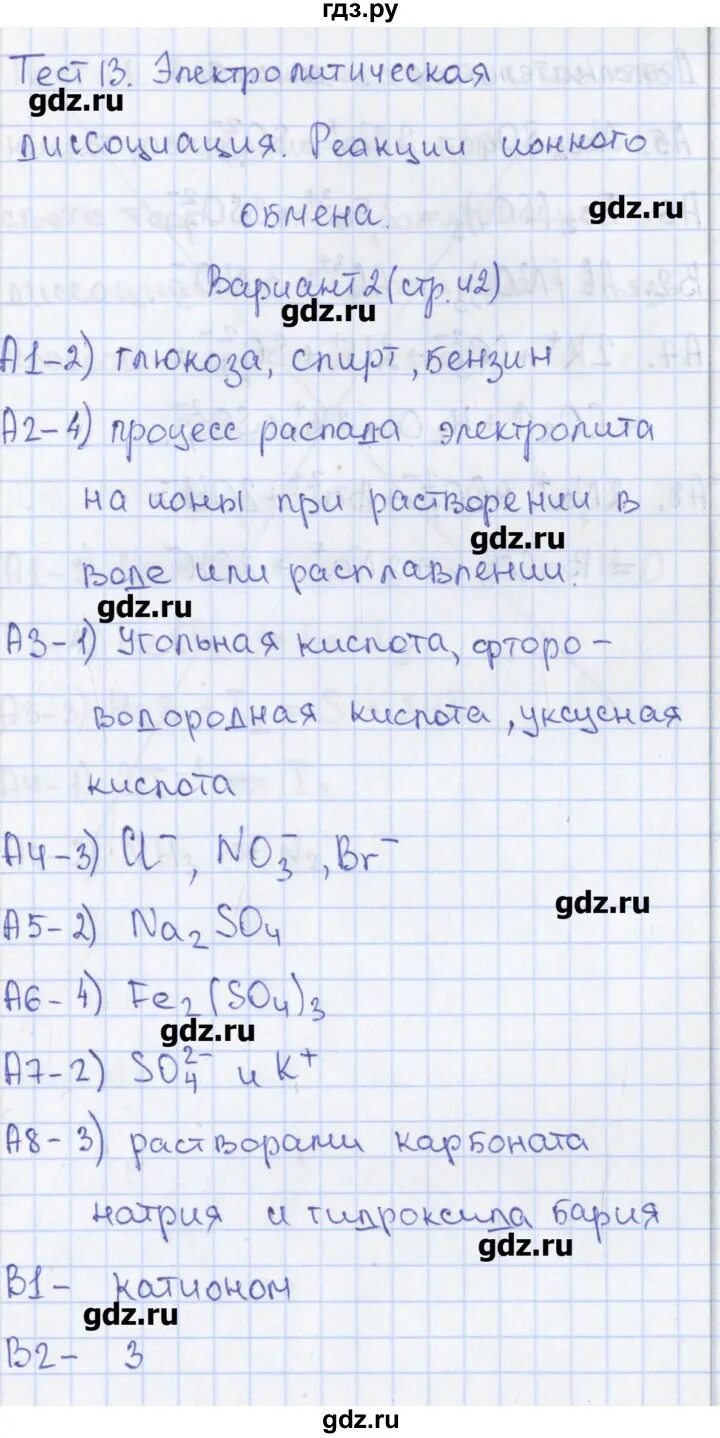 гдз.ру
Тест 13. Электролитическая
gdz.ru
диссоциация. Реакции ионного
обмена.
gdz.ru
Вариант 2 (стр. 42)
gdz.ru
А1-2) глюкоза, спирт, бензин
А2-4) процесс распада электролита
на ионы при растворении в
gdz.ru
воде или расплавлении.
gdz.ru
А3-1) Угольная кислота, фторо-
водородная кислота, уксусная
кислота
А4-3) Cl⁻, NO₃⁻, Br⁻
gdz.ru
А5-2) Na₂SO₄
А6-4) Fe₂(SO₄)₃
gdz.ru
А7-2) SO₄²⁻ и K⁺
А8-3) растворами карбоната
натрия и гидроксида бария
gdz.ru
В1- катионом
gdz.ru
В2- 3
gdz.ru